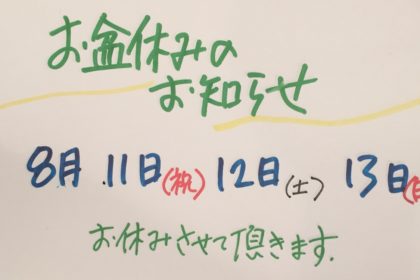 お盆休みの
お知らせ
8月 11日(祝) 12日(土) 13日(日
お休みさせて頂きます.